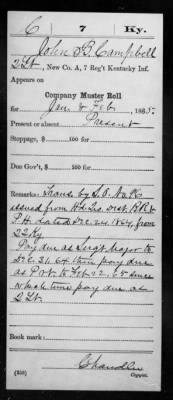 C 7 Ky.
John B Campbell
2 Lt, New Co. A, 7 Reg't Kentucky Inf.
Appears on
Company Muster Roll
for Jan & Feb, 1865.
Present or absent Present
Stoppage, $ 100 for
Due Gov't, $ 100 for
Remarks: Trans by S.O. No
issued from Hd. Qrs. Dist. B.R. &
P.H. dated Dec. 24. 1864, from
22 Ky
Pay due as Sergt Major to
Dec. 31, 64 then pay due
as Pvt to Feb 22, 65 since
which time pay due as
2 Lt.
Book mark:
(358) Chandler
Copyist.